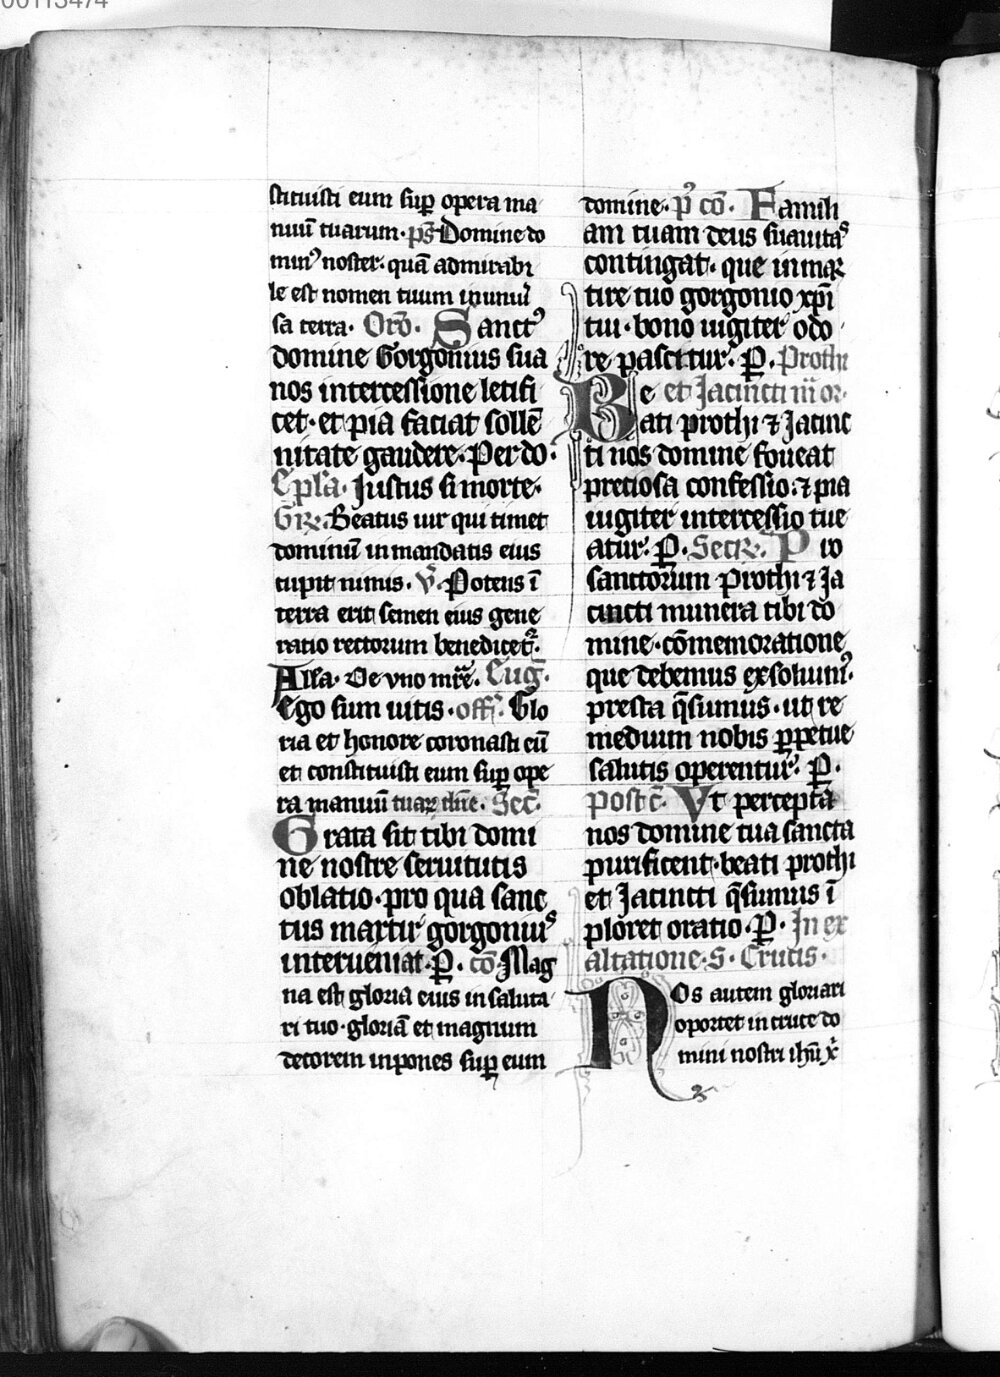 00113474
stituisti eum suꝑ opera ma
nuū tuarum· ps̄ Domine do
minꝰ noster· quā admirabi
le est nomen tuum in uniū
sa terra· Oro̅· Sanctꝰ
domine Gorgonius sua
nos intercessione letifi
cet· et pia faciat sollē
nitate gaudere· Per do·
Epl̅a· Justus si morte·
Gr̅· Beatus uir qui timet
dominū in mandatis eius
cupit nimis· v̅· Potens ī
terra erit semen eius gene
ratio rectorum benedicet᷑·
All̅a· De vno mr̅e· Eug̅·
Ego sum uitis· off̅· Glo
ria et honore coronasti eū
et constituisti eum suꝑ ope
ra manuū tuaꝝ dn̅e· Sec̅·
Grata sit tibi domi
ne nostre seruitutis
oblatio· pro qua sanc
tus martir gorgoniuˢ
interueniat· P̲· co̅· Mag
na est gloria eius in saluta
ri tuo· gloriā et magnum
decorem inpones suꝑ eum
domine· p̉ co̅· Famili
am tuam deus suauitaˢ
contingat· que in maꝛ
tire tuo gorgonio xp̅i
tui· bono iugiter odo
re pascitur· P̲· Prothi
Be et Jacincti m̅ or·
ati prothi ⁊ Jacinc
ti nos domine foueat
preciosa confessio· ⁊ pia
iugiter intercessio tue
atur· P̲· Secr̅· Pro
sanctorum Prothi ⁊ Ja
cincti munera tibi do
mine· cōmemoratione
que debemus exsoluimꝰ·
presta q̅sumus· ut re
medium nobis ꝑpetue
salutis operentur· P̲·
postc̅· Vt percepta
nos domine tua sancta
purificent· beati prothi
et Jacincti q̅sumus ī
ploret oratio· P̲· In ex
altatione· S· Crucis·
Nos autem gloriari
oportet in cruce do
mini nostri ih̅u x̅